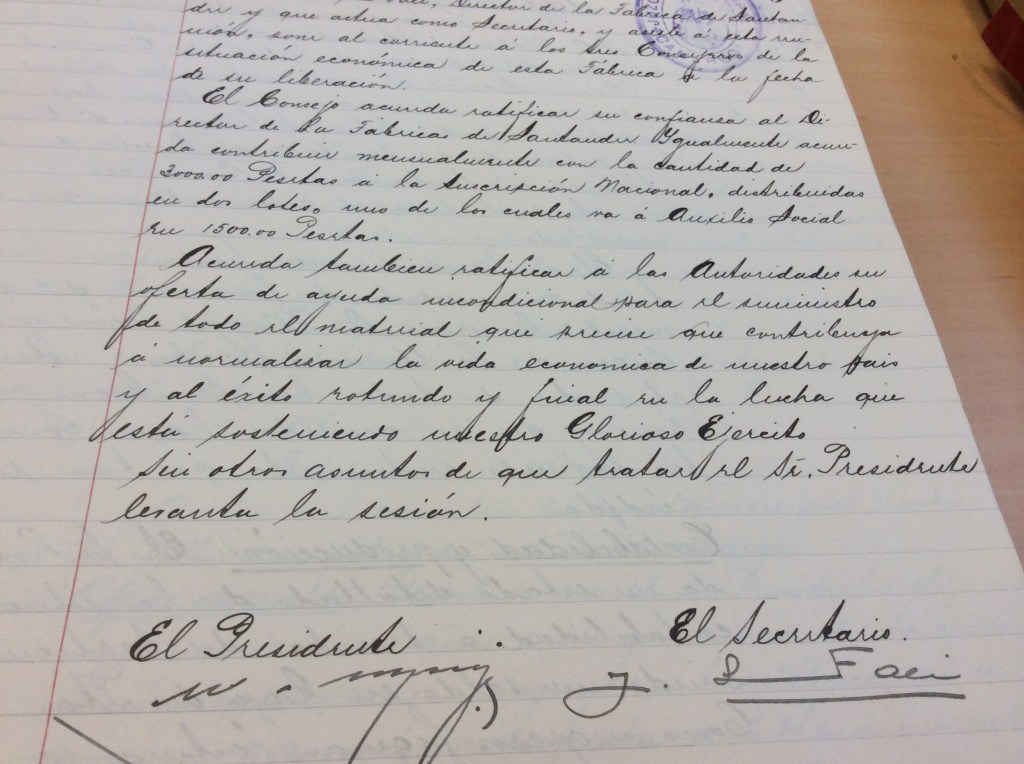 Director de la Fábrica de Santan-
der y que actua como Secretario, y asiste á esta reu-
nión, pone al corriente á los tres Consejeros de la
situación económica de esta Fábrica á la fecha
de su liberación.
El Consejo acuerda ratificar su confianza al Di-
rector de la Fábrica de Santander. Ygualmente acuer-
da contribuir mensualmente con la cantidad de
3000.00 Pesetas á la Suscripción Nacional, distribuidas
en dos lotes, uno de los cuales va á Auxilio Social
en 1500.00 Pesetas.
Acuerda tambien ratificar á las Autoridades su
oferta de ayuda incondicional para el suministro
de todo el material que precise que contribuya
á normalizar la vida economica de nuestro pais
y al éxito rotundo y final en la lucha que
está sosteniendo nuestro Glorioso Ejercito
Sin otros asuntos de que tratar el Sr. Presidente
levanta la sesión.
El Presidente
El Secretario.